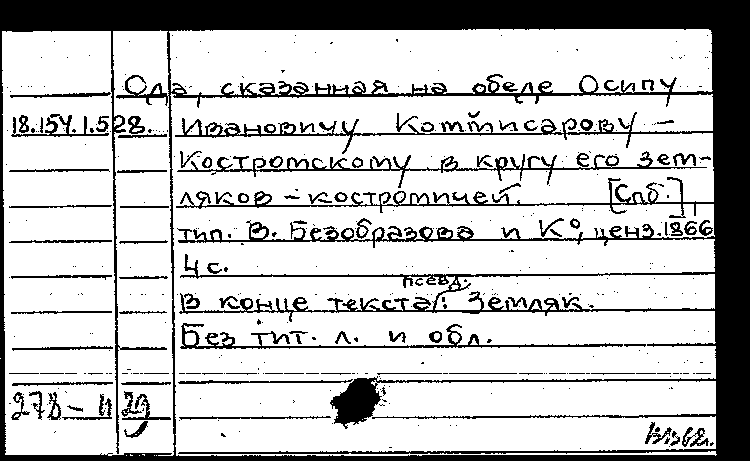 Ода, сказанная на обеде Осипу
18.154.1.528. Ивановичу Коммисарову –
Костромскому в кругу его зем-
ляков – костромичей. [Спб.],
тип. В. Безобразова и К°, ценз. 1866
4 с.
псевд.
В конце текста: Земляк.
Без тит. л. и обл.
278 – н 29